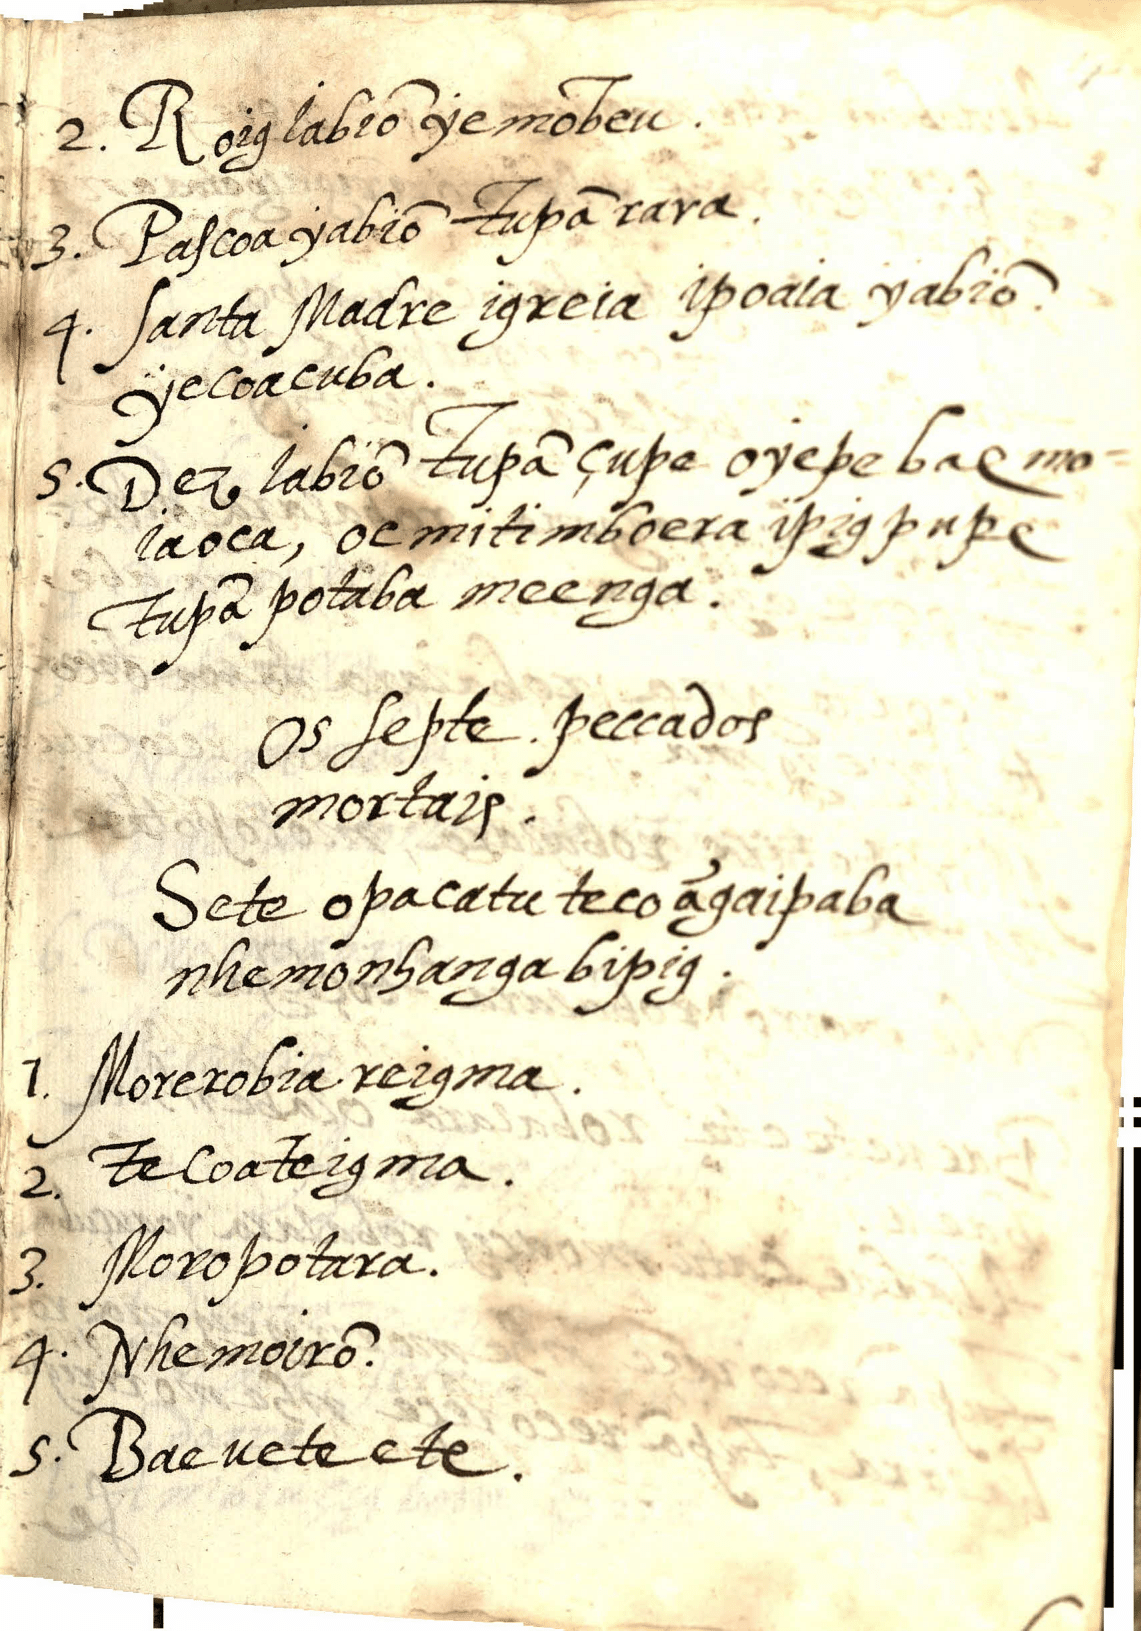 2. Roig labiõ ÿemõbeu.
3. Pascoa yabiõ tupã rara.
4. Santa Madre igreia ipoaia yabiõ
ÿecoacuba.
5. Dez labiõ tupã çupe oÿepe bae mo-
iaoca, oemitimboera ipig pupe
tupã potaba meenga.
Os septe. peccados
mortais.
Sete opacatu teco ãgaipaba
nhemonhanga bipig.
1. Morerobia reigma.
2. tecoateigma.
3. Moropotara.
4. Nhemoirõ.
5. Bae ueteete.